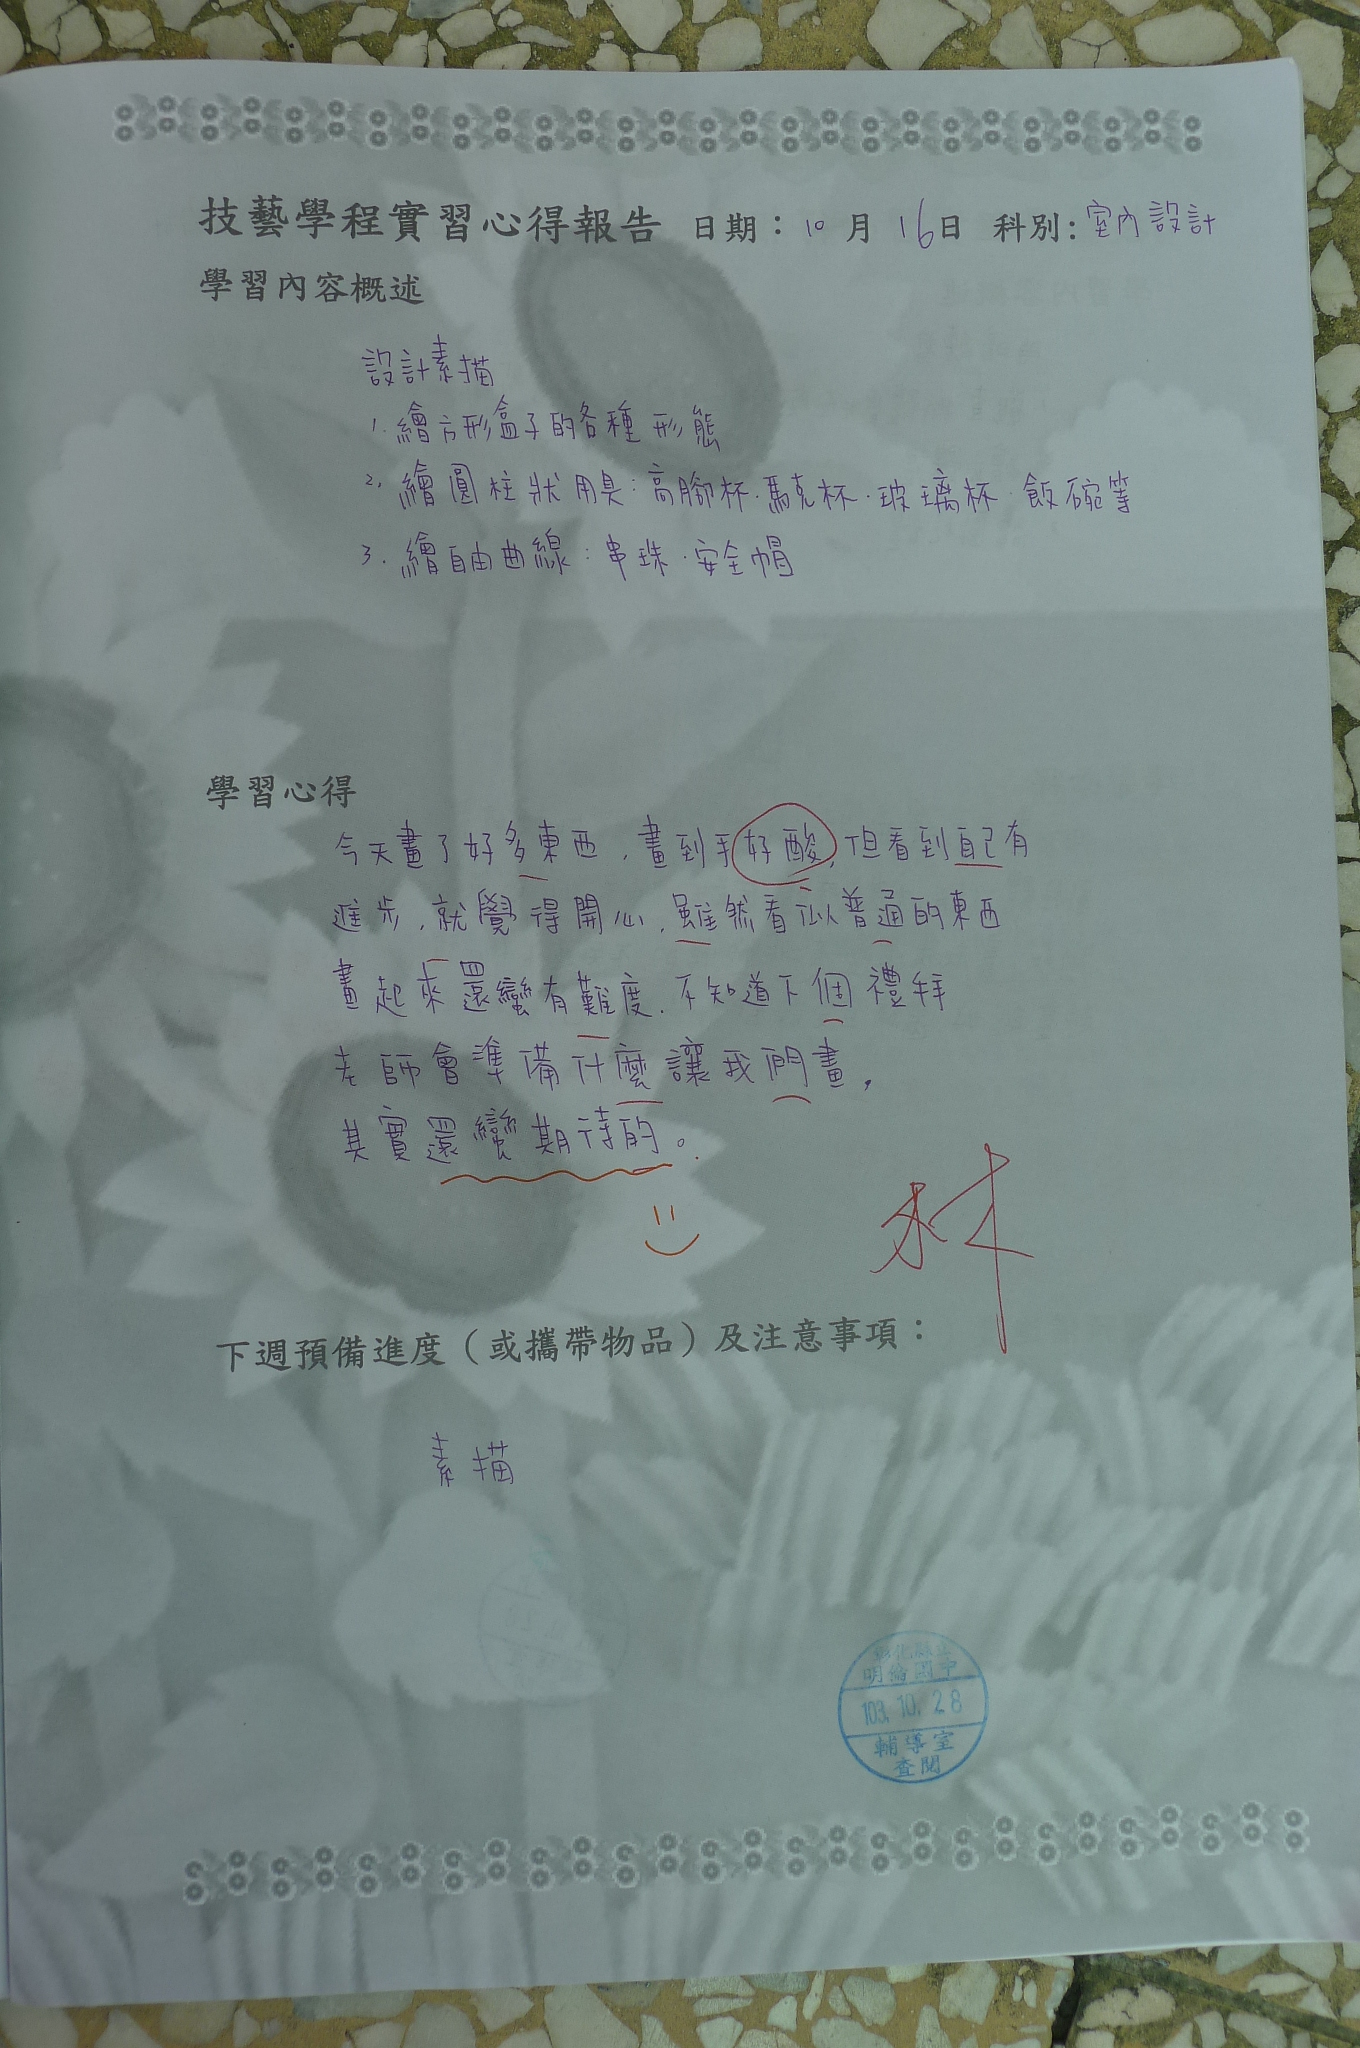 技藝學程實習心得報告 日期：10月16日 科別：室內設計
學習內容概述
設計素描
1. 繪方形盒子的各種形態
2. 繪圓柱狀用具：高腳杯．馬克杯．玻璃杯．飯碗等
3. 繪自由曲線：串珠．安全帽
學習心得
今天畫了好多東西，畫到手好酸，但看到自己有
進步，就覺得開心，雖然看似普通的東西
畫起來還蠻有難度，不知道下個禮拜
老師會準備什麼讓我們畫，
其實還蠻期待的。
林
下週預備進度（或攜帶物品）及注意事項：
素描
彰化縣立
明倫國中
103.10.28
輔導室
查閱